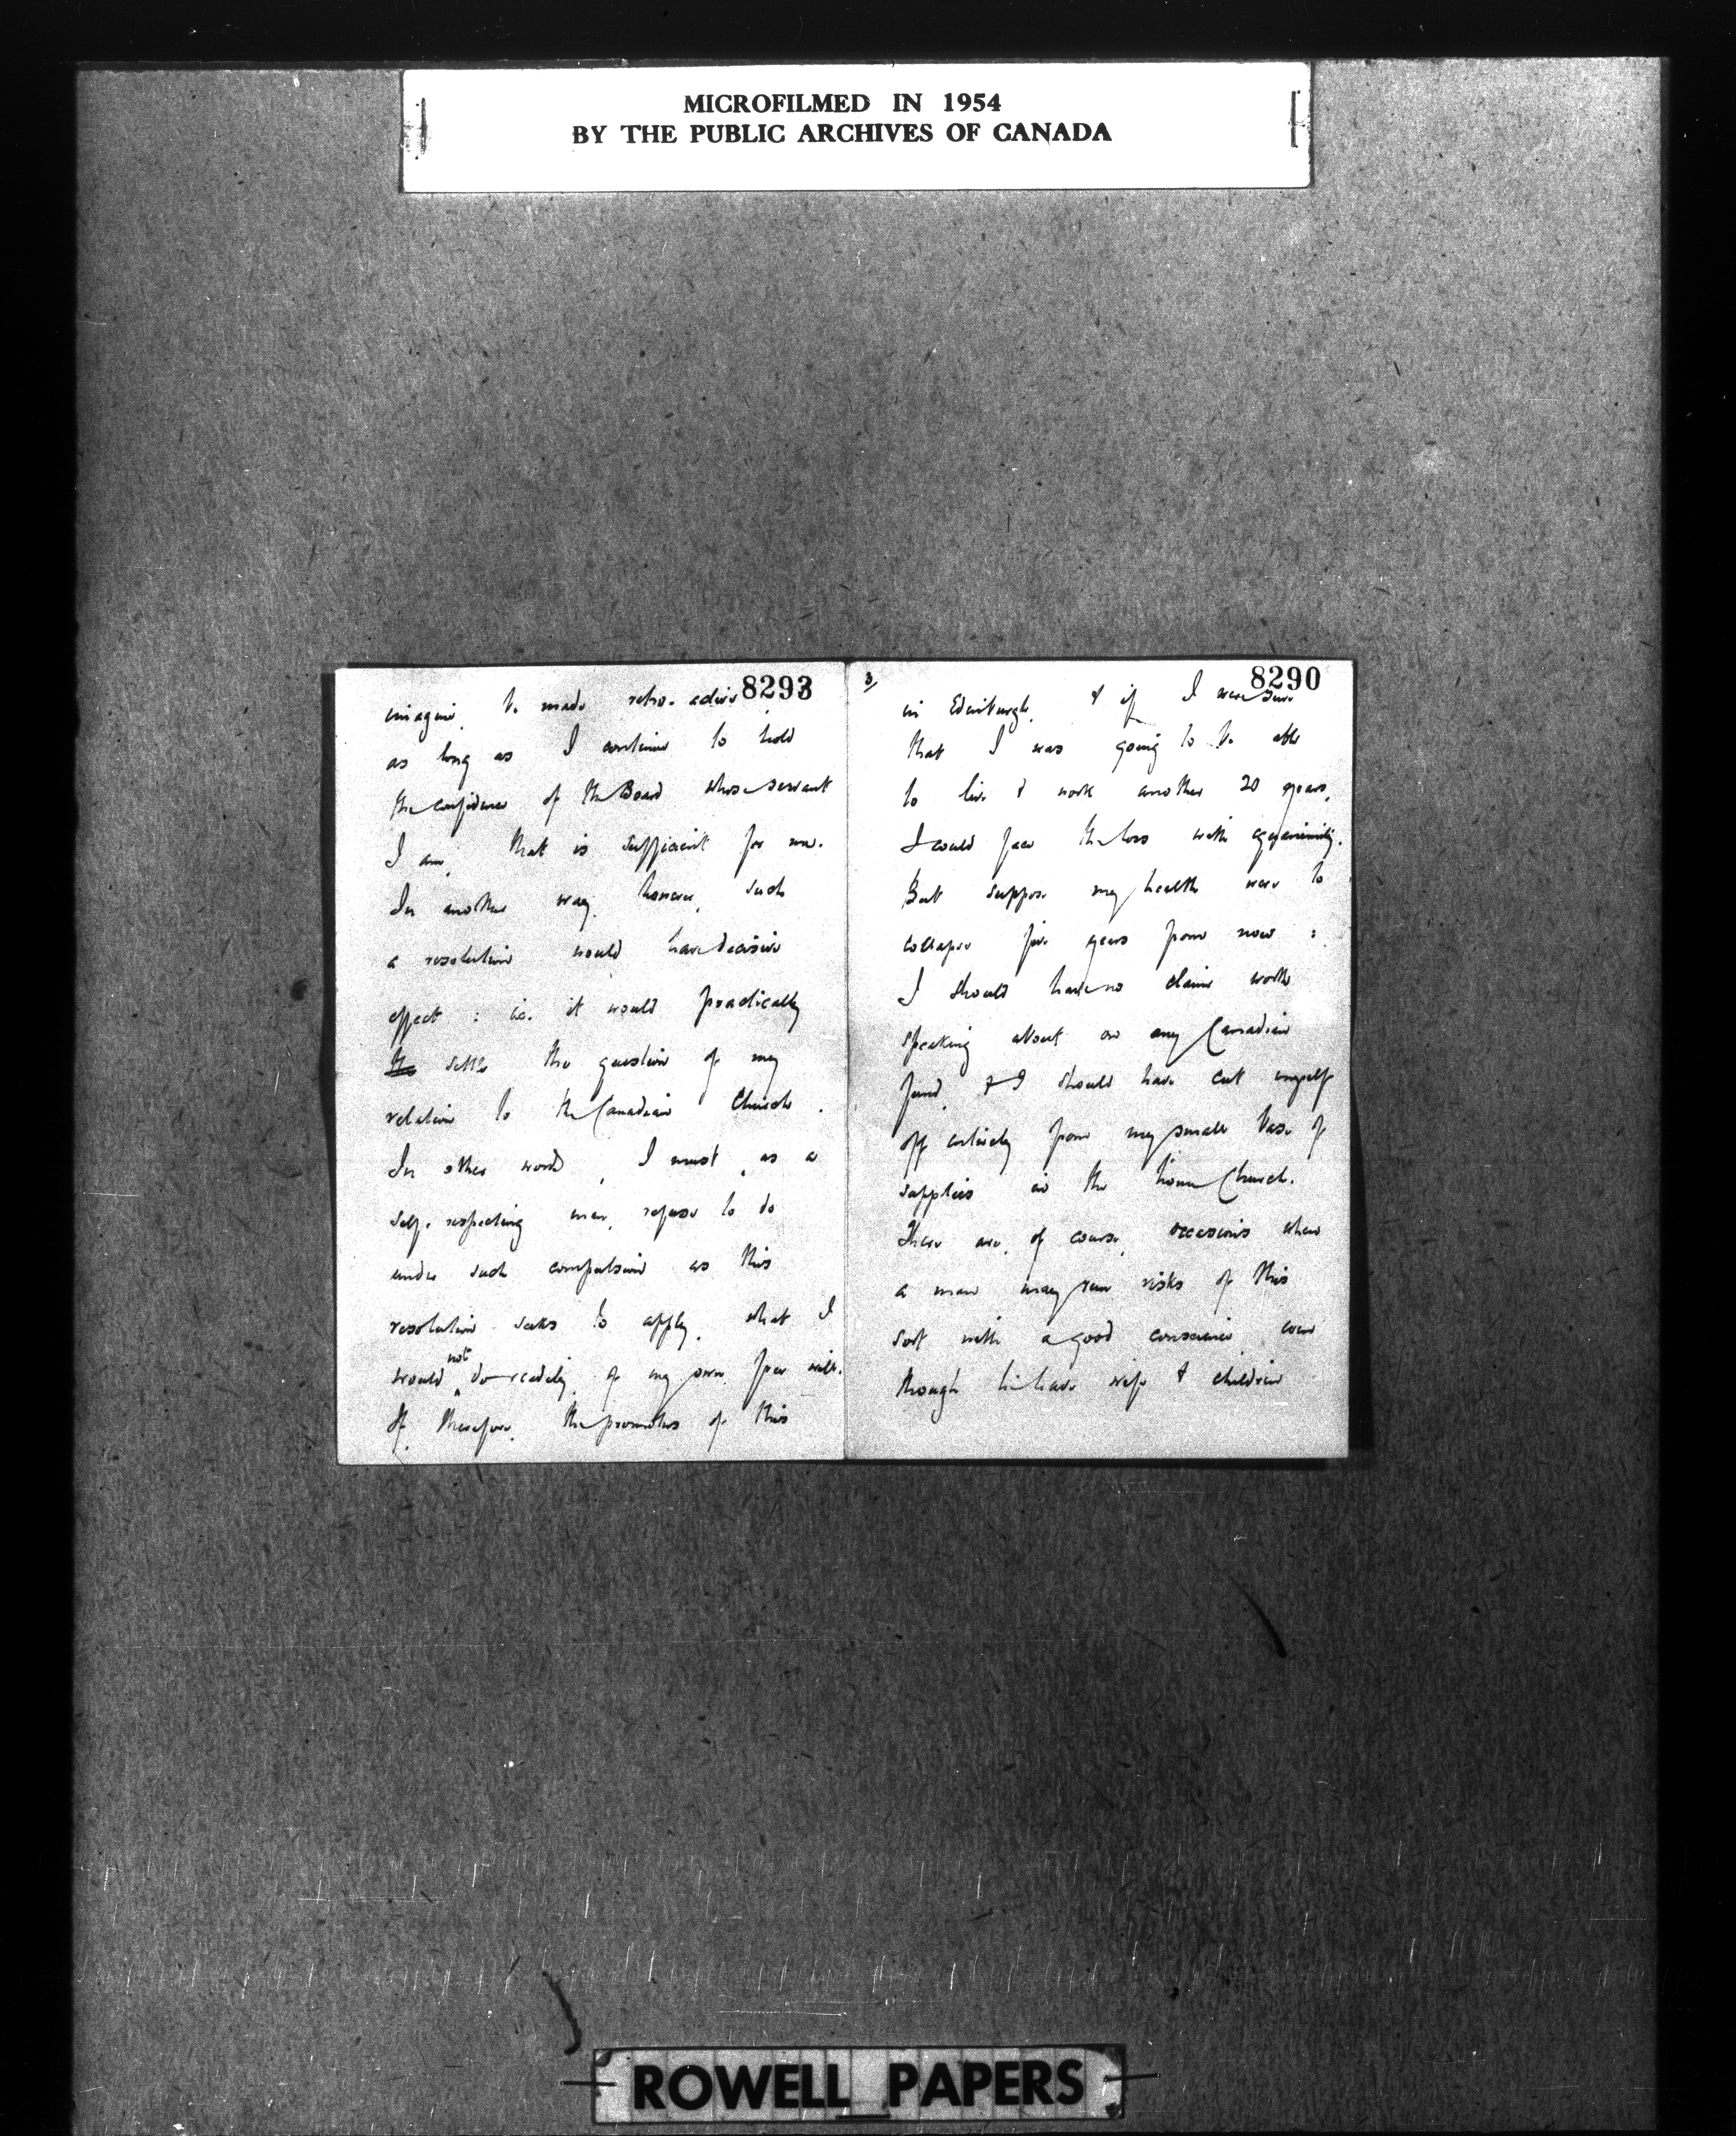 MICROFILMED IN 1954
BY THE PUBLIC ARCHIVES OF CANADA
8293
imagine, be made retro-active.
as long as I continue to hold
the confidence of the Board whose servant
I am, that is sufficient for me.
In another way, however, such
a resolution would have decisive
effect : i.e. it would practically
the settle the question of my
relation to the Canadian Church.
In other words, I must, as a
self-respecting man, refuse to do
under such compulsion as this
resolution seeks to apply, what I
would not do readily of my own free will.
If, therefore, the promoters of this
3/
8290
in Edinburgh, & if I were sure
that I was going to be able
to live & work another 20 years,
I could face the loss with equanimity.
But suppose my health were to
collapse five years from now :
I should have no claim worth
speaking about on any Canadian
fund, & I should have cut myself
off entirely from my small base of
supplies in the home Church.
There are, of course, occasions when
a man may run risks of this
sort with a good conscience even
though he have wife & children
ROWELL PAPERS